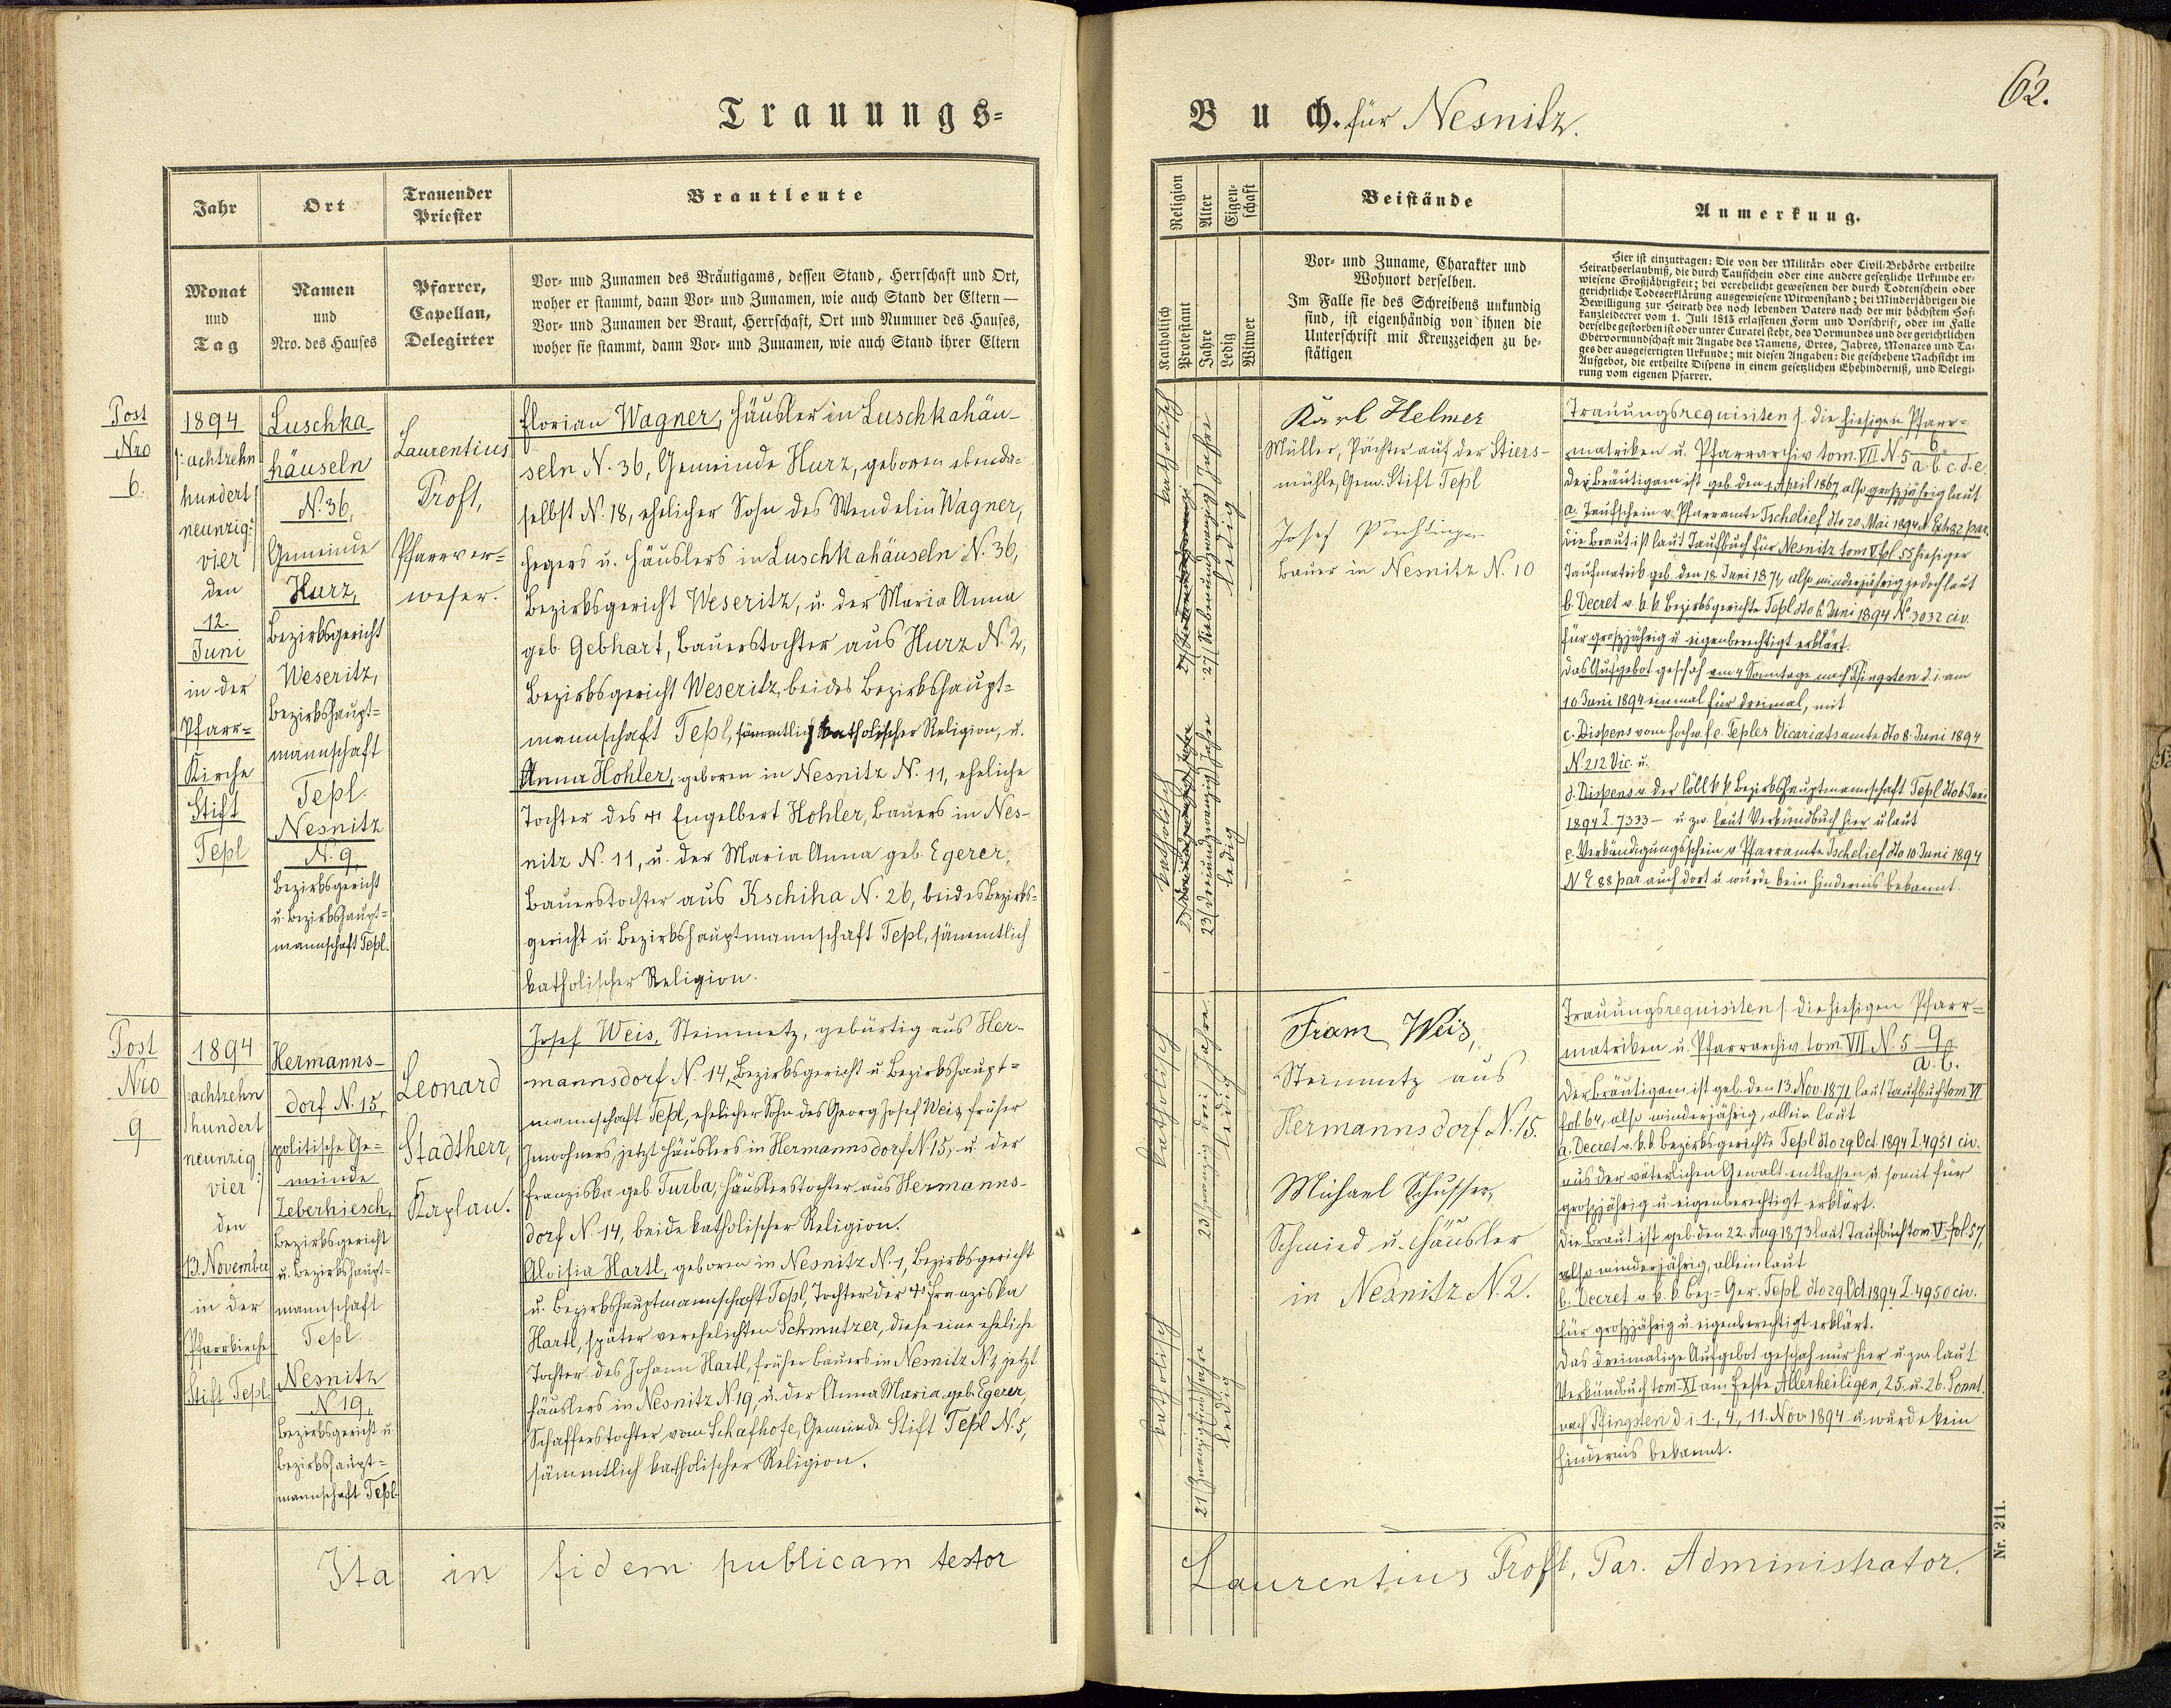 Trauungs-
Jahr
Ort
Trauender
Priester
Brautleute
Monat
und
Tag
Namen
und
Nro. des Hauses
Pfarrer,
Capellan,
Delegirter
Vor- und Zunamen des Bräutigams, dessen Stand, Herrschaft und Ort,
woher er stammt, dann Vor- und Zunamen, wie auch Stand der Eltern —
Vor- und Zunamen der Braut, Herrschaft, Ort und Nummer des Hauses,
woher sie stammt, dann Vor- und Zunamen, wie auch Stand ihrer Eltern
Post
Nro
6.
1894
/: achtzehn
hundert
neunzig
vier :/
den
12.
Juni
in der
Pfarr-
Kirche
Stift
Tepl
Luschka-
häuseln
N. 36,
Gemeinde
Hurz,
Bezirksgericht
Weseritz,
Bezirkshaupt-
mannschaft
Tepl.
Nesnitz
N. 9,
Bezirksgericht
u. Bezirkshaupt-
mannschaft Tepl.
Laurentius
Proft,
Pfarrver-
weser.
Florian Wagner, Häusler in Luschkahäu-
seln N. 36, Gemeinde Hurz, geboren ebenda-
selbst N. 18, ehelicher Sohn des Wendelin Wagner,
Hegers u. Häuslers in Luschkahäuseln N. 36,
Bezirksgericht Weseritz, u. der Maria Anna
geb. Gebhart, Bauerstochter aus Hurz N. 2,
Bezirksgericht Weseritz, beides Bezirkshaupt-
mannschaft Tepl, sämmtlich katholischer Religion, u.
Anna Hohler, geboren in Nesnitz N. 11, eheliche
Tochter des † Engelbert Hohler, Bauers in Nes-
nitz N. 11, u. der Maria Anna geb. Egerer,
Bauerstochter aus Kschiha N. 26, beides Bezirks-
gericht u. Bezirkshauptmannschaft Tepl, sämmtlich
katholischer Religion.
Post
Nro
9
1894
/: achtzehn
hundert
neunzig
vier :/
den
13. November
in der
Pfarrkirche
Stift Tepl.
Hermanns-
dorf N. 15,
politische Ge-
meinde
Zeberhiesch,
Bezirksgericht
u. Bezirkshaupt-
mannschaft
Tepl.
Nesnitz
N. 19,
Bezirksgericht u.
Bezirkshaupt-
mannschaft Tepl.
Leonard
Stadtherr,
Kaplan.
Josef Weis, Steinmetz, gebürtig aus Her-
mannsdorf N. 14, Bezirksgericht u. Bezirkshaupt-
mannschaft Tepl, ehelicher Sohn des Georg Josef Weis, früher
Inwohners, jetzt Häuslers in Hermannsdorf N. 15, u. der
Franziska geb. Turba, Häuslerstochter aus Hermanns-
dorf N. 14, beide katholischer Religion.
Aloisia Hartl, geboren in Nesnitz N. 1, Bezirksgericht
u. Bezirkshauptmannschaft Tepl, Tochter der † Franziska
Hartl, später verehelichten Schmutzer, diese eine eheliche
Tochter des Johann Hartl, früher Bauers in Nesnitz N. 1, jetzt
Häuslers in Nesnitz N. 19, u. der Anna Maria geb. Egerer,
Schafferstochter vom Schafhofe, Gemeinde Stift Tepl N. 5,
sämmtlich katholischer Religion.
Ita in fidem publicam testor
Buch. für Nesnitz.
62.
Religion
Alter
Eigen-
schaft
Beistände
Anmerkung.
Katholisch
Protestant
Jahre
Ledig
Witwer
Vor- und Zuname, Charakter und
Wohnort derselben.
Im Falle sie des Schreibens unkundig
sind, ist eigenhändig von ihnen die
Unterschrift mit Kreuzzeichen zu be-
stätigen
Hier ist einzutragen: Die von der Militär- oder Civil-Behörde ertheilte
Heirathserlaubniß, die durch Taufschein oder eine andere gesetzliche Urkunde er-
wiesene Großjährigkeit; bei verehelicht gewesenen der durch Todtenschein oder
gerichtliche Todeserklärung ausgewiesene Witwenstand; bei Minderjährigen die
Bewilligung zur Heirath des noch lebenden Vaters nach der mit höchstem Hof-
kanzleidecret vom 1. Juli 1813 erlassenen Form und Vorschrift, oder im Falle
derselbe gestorben ist oder unter Curatel steht, des Vormundes und der gerichtlichen
Obervormundschaft mit Angabe des Namens, Ortes, Jahres, Monates und Ta-
ges der ausgefertigten Urkunde; mit diesen Angaben: die geschehene Nachsicht im
Aufgebot, die ertheilte Dispens in einem gesetzlichen Ehehinderniß, und Delegi-
rung vom eigenen Pfarrer.
katholisch
27 / Siebenundzwanzig / Jahre
ledig
katholisch
23 / dreiundzwanzig / Jahre
ledig
Karl Helmer
Müller, Pächter auf der Stiers-
mühle, Gem. Stift Tepl
Josef
Bauer in Nesnitz N. 10
Trauungsrequisiten s. die hiesigen Pfarr-
matriken u. Pfarrarchiv tom. VII N. 5 6 a. b. c. d. e.
Der Bräutigam ist geb. den 1. April 1867, also großjährig laut
a. Taufschein v. Pfarramte Tschelief dto 20. Mai 1894 N. Exh. 82 par.
Die Braut ist laut Taufbuch für Nesnitz tom V fol. 55 hiesiger
Taufmatrik geb. den 18. Juni 1871, also minderjährig jedoch laut
b. Decret v. k. k. Bezirksgerichte Tepl dto 6. Juni 1894 No 3032 civ.
für großjährig u. eigenberechtigt erklärt.
Das Aufgebot geschah am 4 Sonntage nach Pfingsten d. i. am
10. Juni 1894 einmal für dreimal, mit
c. Dispens vom hochw. f. e. Tepler Vicariatsamte dto 8. Juni 1894
N. 212 Vic. u.
d. Dispens v. der löbl. k. k. Bezirkshauptmannschaft Tepl dto 6. Juni
1894 Z. 7333 — u. zw. laut Verkündbuch hier u. laut
e. Verkündigungsschein v. Pfarramte Tschelief dto 10. Juni 1894
N. E 88 par. auch dort u. wurde kein Hindernis bekannt.
katholisch
23 / zwanzig drei / Jahre
ledig
katholisch
21 / zwanzigeins / Jahre
ledig
Franz Weis,
Steinmetz aus
Hermannsdorf N. 15.
Michael Schusser,
Schmied u. Häusler
in Nesnitz N. 2.
Trauungsrequisiten s. die hiesigen Pfarr-
matriken u. Pfarrarchiv tom. VII N. 5 9 a. b.
Der Bräutigam ist geb. den 13. Nov. 1871 laut Taufbuch tom. VI
fol. 64, also minderjährig, allein laut
a. Decret v. k. k. Bezirksgerichte Tepl dto 29. Oct. 1894 Z. 4951 civ.
aus der väterlichen Gewalt entlassen u. somit für
großjährig u. eigenberechtigt erklärt.
Die Braut ist geb. den 22. Aug. 1873 laut Taufbuch tom. V. fol. 57,
also minderjährig, allein laut
b. Decret v. k. k. Bez.-Ger. Tepl dto 29. Oct. 1894 Z. 4950 civ.
für großjährig u. eigenberechtigt erklärt.
Das dreimalige Aufgebot geschah nur hier u. zw. laut
Verkündbuch tom. XI am Feste Allerheiligen, 25. u. 26. Sonnt.
nach Pfingsten d. i. 1., 4., 11. Nov. 1894 u. wurde kein
Hindernis bekannt.
Laurentius Proft, Par. Administrator.
Nr. 211.